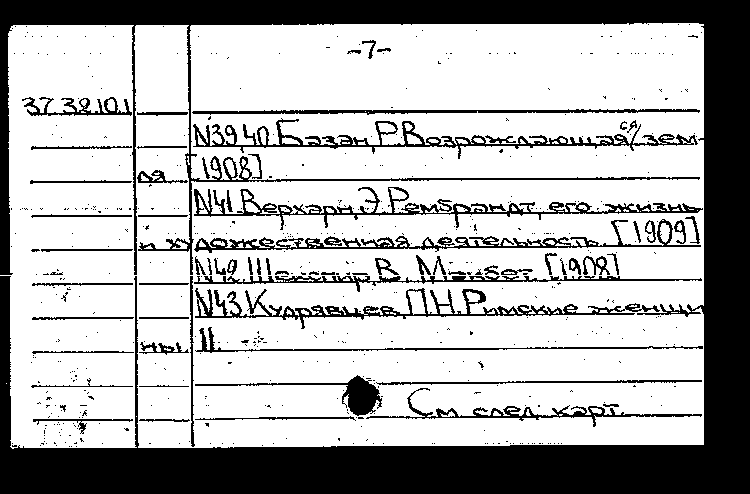 -7-
37.38.10.1
N39,40. Базан, Р. Возрождающаяся зем-
ля [1908].
N41. Верхарн, Э. Рембрандт, его жизнь
и художественная деятельность. [1909]
N42. Шекспир, В. Макбет [1908]
N43. Кудрявцев, П.Н. Римские женщи
ны. II.
См след. карт.